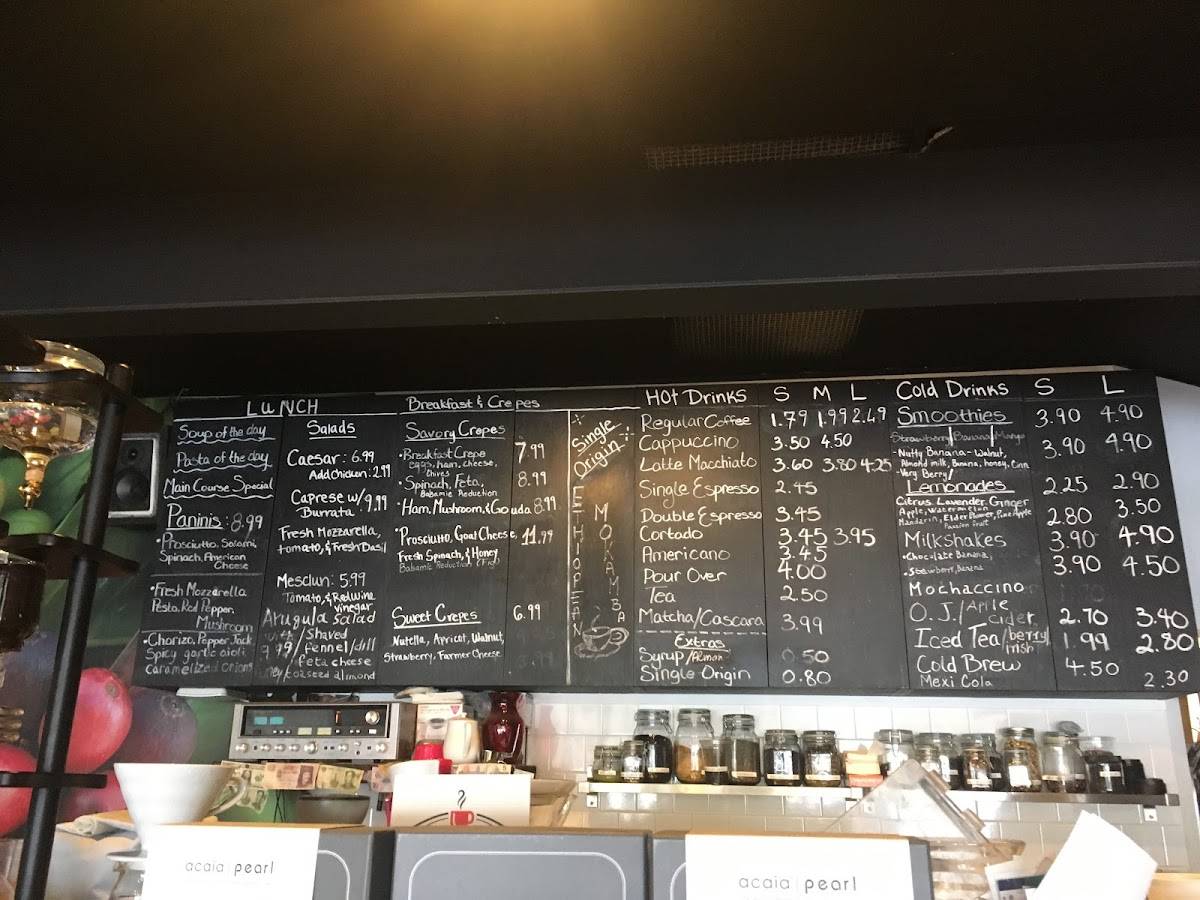 LUNCH
Soup of the day
Pasta of the day
Main Course Special
Paninis : 8.99
•Prosciutto, Salami,
Spinach, American
Cheese
•Fresh Mozzarella
Pesto, Red Pepper,
Mushroom
•Chorizo, Pepper Jack
Spicy garlic aioli
caramelized onions
Salads
Caesar : 6.99
Add Chicken : 2.99
Caprese w/ 9.99
Burrata
Fresh Mozzarella,
tomato, & Fresh Basil
Mesclun : 5.99
Tomato, & Red Wine
vinegar
Arugula Salad
with / shaved
9.99 / fennel / dill
feta cheese
toasted almond
Breakfast & Crepes
Savory Crepes
•Breakfast Crepe 7.99
eggs, ham, cheese,
chives
•Spinach, Feta, 8.99
Balsamic Reduction
•Ham, Mushroom, & Gouda 8.99
•Prosciutto, Goat Cheese, 11.99
Fresh Spinach, & Honey
Balsamic Reduction (Fig)
Sweet Crepes 6.99
Nutella, Apricot, Walnut,
Strawberry, Farmer Cheese
Single
Origin:
ETHIOPEAN
MOKAMBA
HOT DRINKS S M L
Regular Coffee 1.79 1.99 2.49
Cappuccino 3.50 4.50
Latte Macchiato 3.60 3.80 4.25
Single Espresso 2.45
Double Espresso 3.45
Cortado 3.45 3.95
Americano 3.45
Pour Over 4.00
Tea 2.50
Matcha/Cascara 3.99
Extras
Syrup/Almon 0.50
Single Origin 0.80
COLD DRINKS S L
Smoothies 3.90 4.90
Strawberry/Banana/Mango
-Nutty Banana-Walnut, 3.90 4.90
Almond milk, Banana, honey, Cinn
-Very Berry/
Lemonades 2.25 2.90
Citrus, Lavender, Ginger
Apple, Watermelon 2.80 3.50
Mandarin, Elder Flower, Pine Apple
Passion fruit
Milkshakes 3.90 4.90
•Chocolate Banana,
•Strawberry, Banana 3.90 4.50
Mochaccino
O.J./Apple
Cider 2.70 3.40
Iced Tea/berry/
Irish 1.99 2.80
Cold Brew 4.50
Mexi Cola 2.30
acaia pearl
acaia pearl